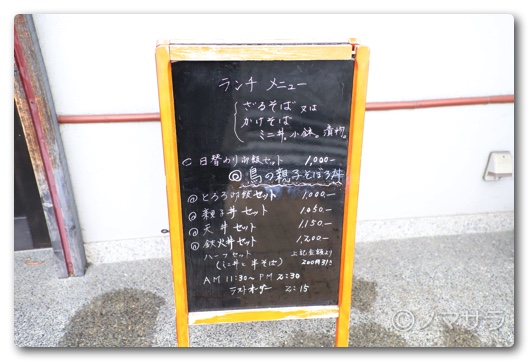 ランチ メニュー
ざるそば 又は
かけそば
ミニ丼。小鉢。漬物。
日替わり御飯セット 1,000-
◎ 鳥の親子そぼろ丼
@ とろろ御飯セット 1,000-
@ 親子丼セット 1,050-
@ 天丼セット 1,150-
@ 鉄火丼セット 1,200-
ハーフセット 上記金額より
(ミニ丼と半そば) 200円引き
AM 11:30~PM 2:30
ラストオーダー 2:15
©ノマサラ